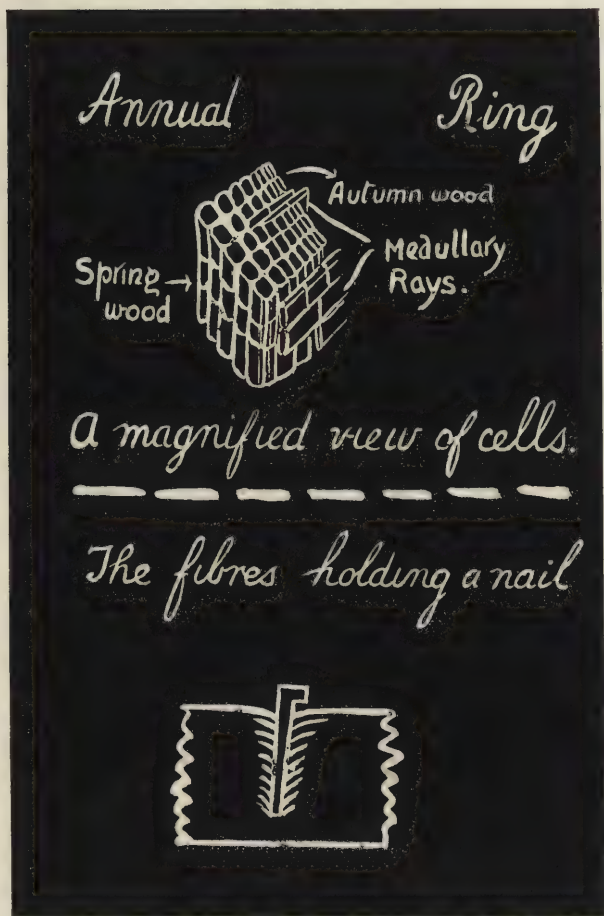 Annual Ring
Autumn wood
Medullary
Rays.
Spring
wood
A magnified view of cells.
The fibres holding a nail